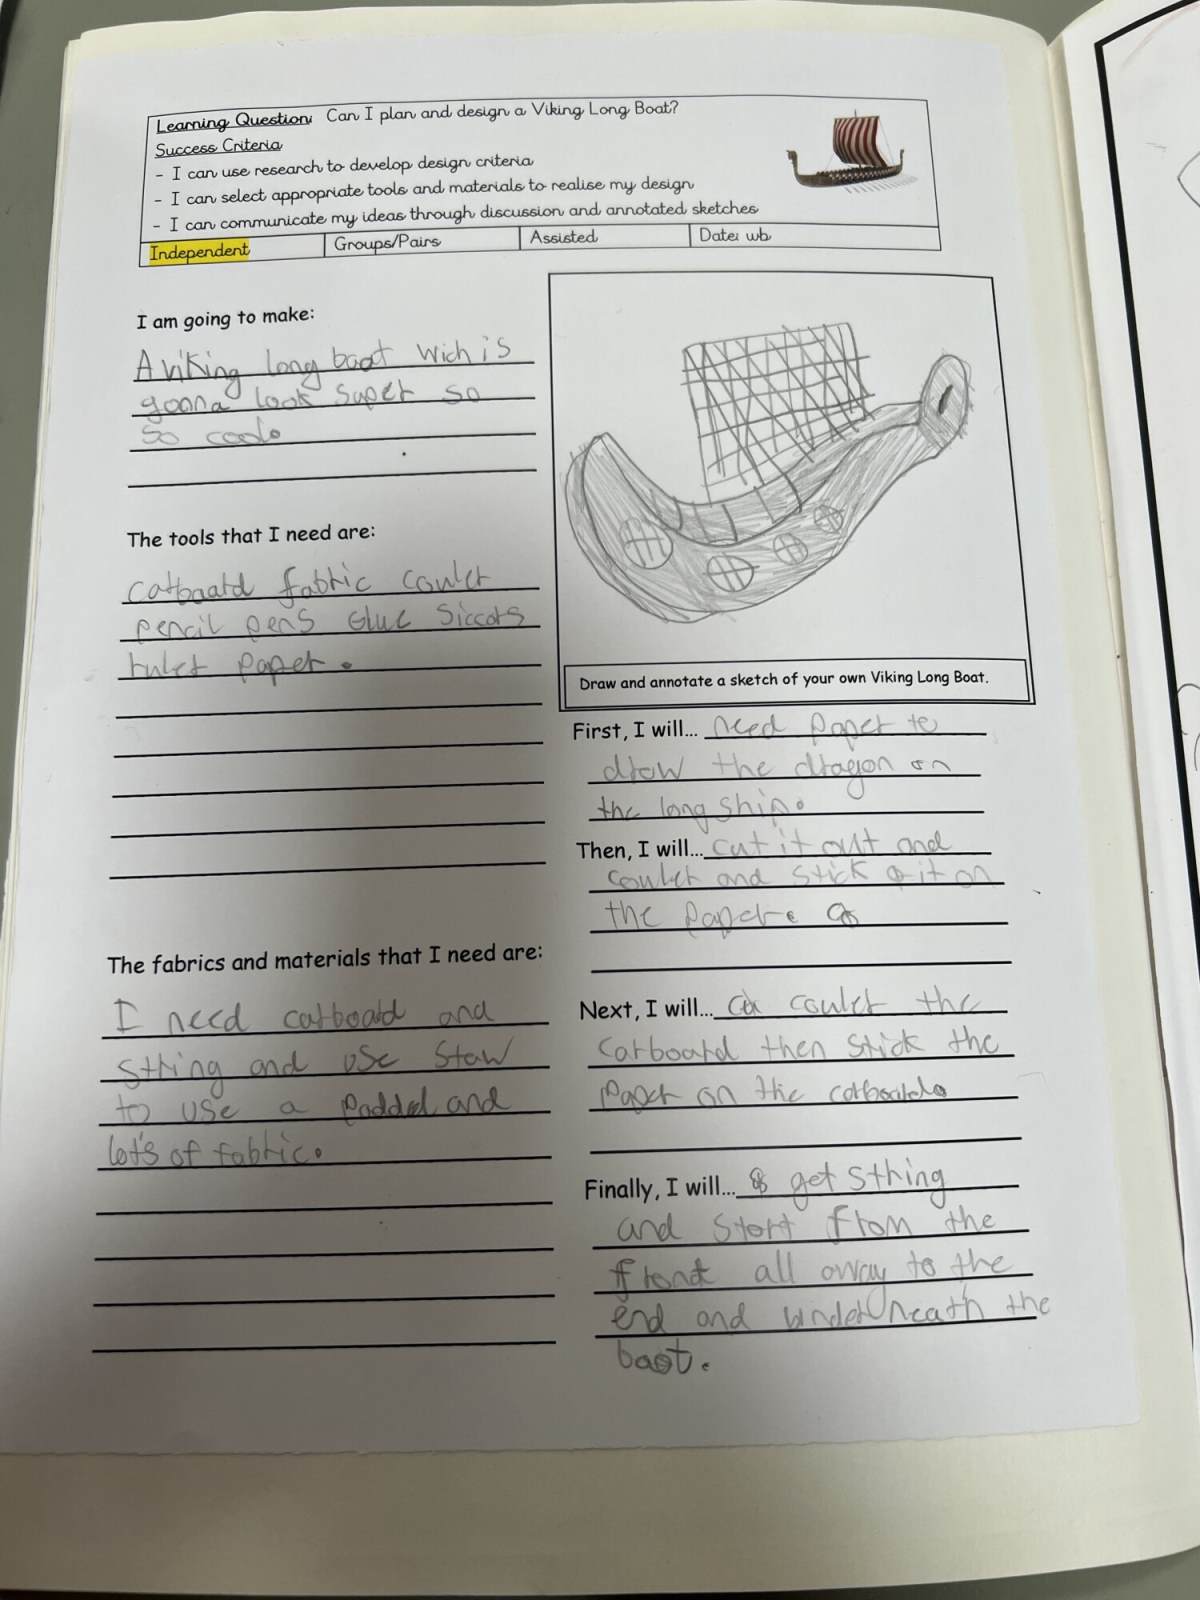 Learning Question: Can I plan and design a Viking Long Boat?
Success Criteria
- I can use research to develop design criteria
- I can select appropriate tools and materials to realise my design
- I can communicate my ideas through discussion and annotated sketches
Independent Groups/Pairs Assisted Date: wb
I am going to make:
A viking long boat wich is
gonna look super so
so cool.
The tools that I need are:
carboard fabric couler
pencil pens Glue Siccors
ruler paper.
The fabrics and materials that I need are:
I need carboard and
string and use staw
to use a paddel and
lot's of fabric.
Draw and annotate a sketch of your own Viking Long Boat.
First, I will... need paper to
draw the dragon on
the long ship.
Then, I will... cut it out and
couler and stick it on
the paper.
Next, I will... couler the
carboard then stick the
paper on the carboard.
Finally, I will... get sthing
and start from the
front all away to the
end and underneath the
baot.